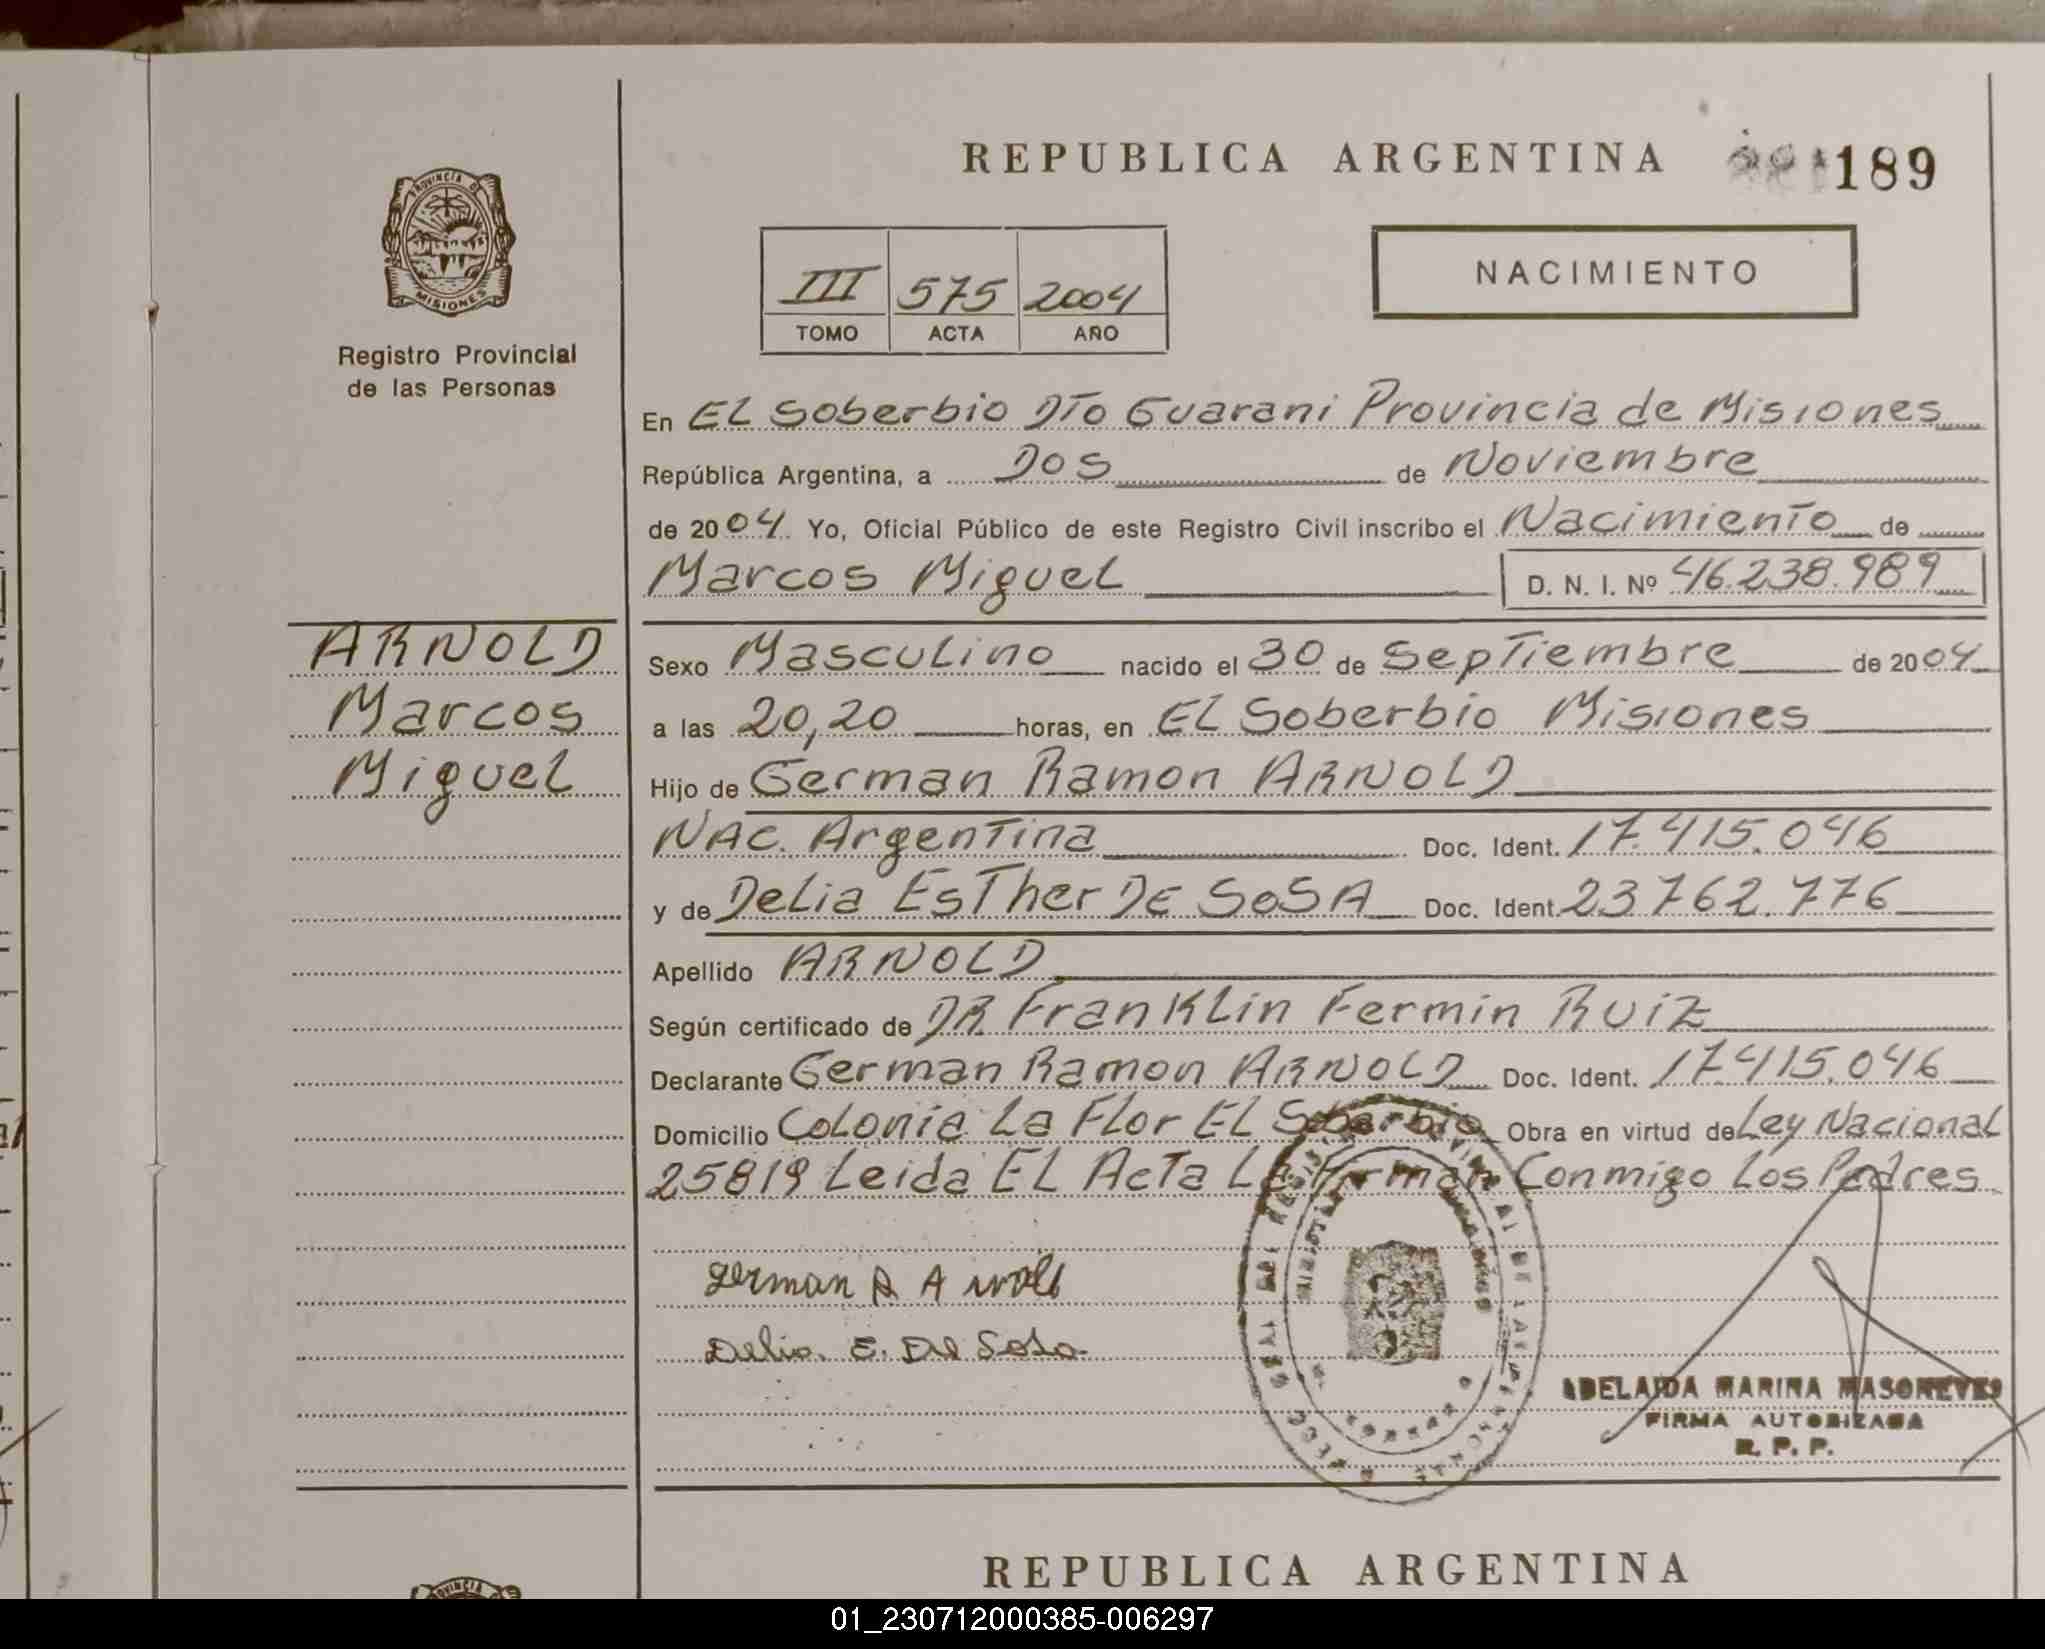 REPUBLICA ARGENTINA 189
PROVINCIA DE
MISIONES
Registro Provincial
de las Personas
III 575 2004
TOMO ACTA AÑO
NACIMIENTO
En EL Soberbio DTo Guarani Provincia de Misiones
República Argentina, a Dos de Noviembre
de 2004 Yo, Oficial Público de este Registro Civil inscribo el Nacimiento de
Marcos Miguel D. N. I. Nº 46.238.989
ARNOLD
Marcos
Miguel
Sexo Masculino nacido el 30 de Septiembre de 2004
a las 20,20 horas, en EL Soberbio Misiones
Hijo de German Ramon ARNOLD
NAC. Argentina Doc. Ident. 17.415.046
y de Delia Esther DE SOSA Doc. Ident. 23.762.776
Apellido ARNOLD
Según certificado de DR Franklin Fermin Ruiz
Declarante German Ramon ARNOLD Doc. Ident. 17.415.046
Domicilio Colonia La Flor EL Soberbio Obra en virtud de Ley Nacional
25819 Leida EL Acta La Firman Conmigo Los Padres
German R Arnold
Delia E. De Sosa
ADELAIDA MARINA
FIRMA AUTORIZADA
R. P. P.
REPUBLICA ARGENTINA
PROVINCIA
01_230712000385-006297